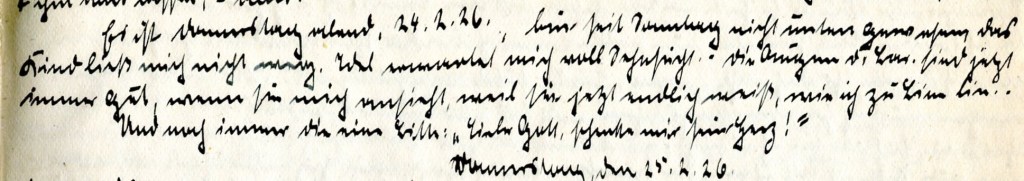 Es ist Donnerstag abend, 24.2.26., bin seit Sonntag nicht unten gewesen das
Kind ließ mich nicht weg. Edel erwartet mich voll Sehnsucht. - Die Augen d. sind jetzt
immer gut, wenn sie mich ansieht, weil sie jetzt endlich weiß, wie ich zu bin..
Und noch immer die eine Bitte: „Lieber Gott, schenke mir sein Herz!"
Donnerstag, den 25.2.26.